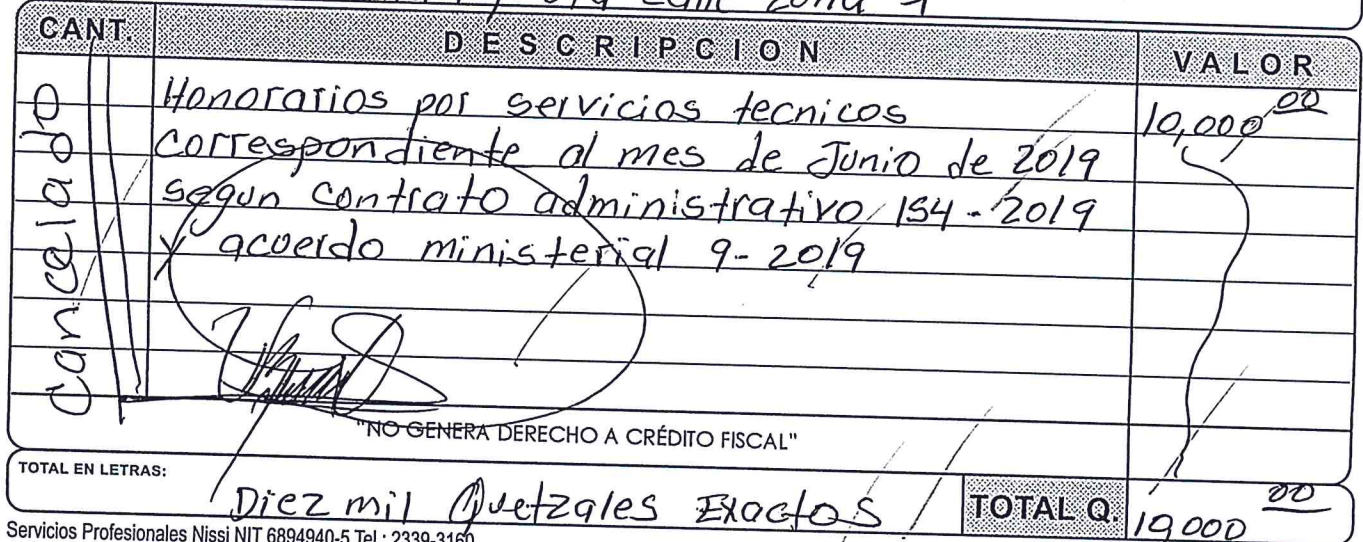 Zona 1
CANT. DESCRIPCION VALOR
Cancelado
Honorarios por servicios tecnicos 10,000 00
correspondiente al mes de Junio de 2019
segun contrato administrativo 154-2019
y acuerdo ministerial 9-2019
"NO GENERA DERECHO A CRÉDITO FISCAL"
TOTAL EN LETRAS: Diez mil Quetzales Exactos TOTAL Q. 10,000 00
Servicios Profesionales Nissi NIT 6894940-5 Tel.: 2339-3160